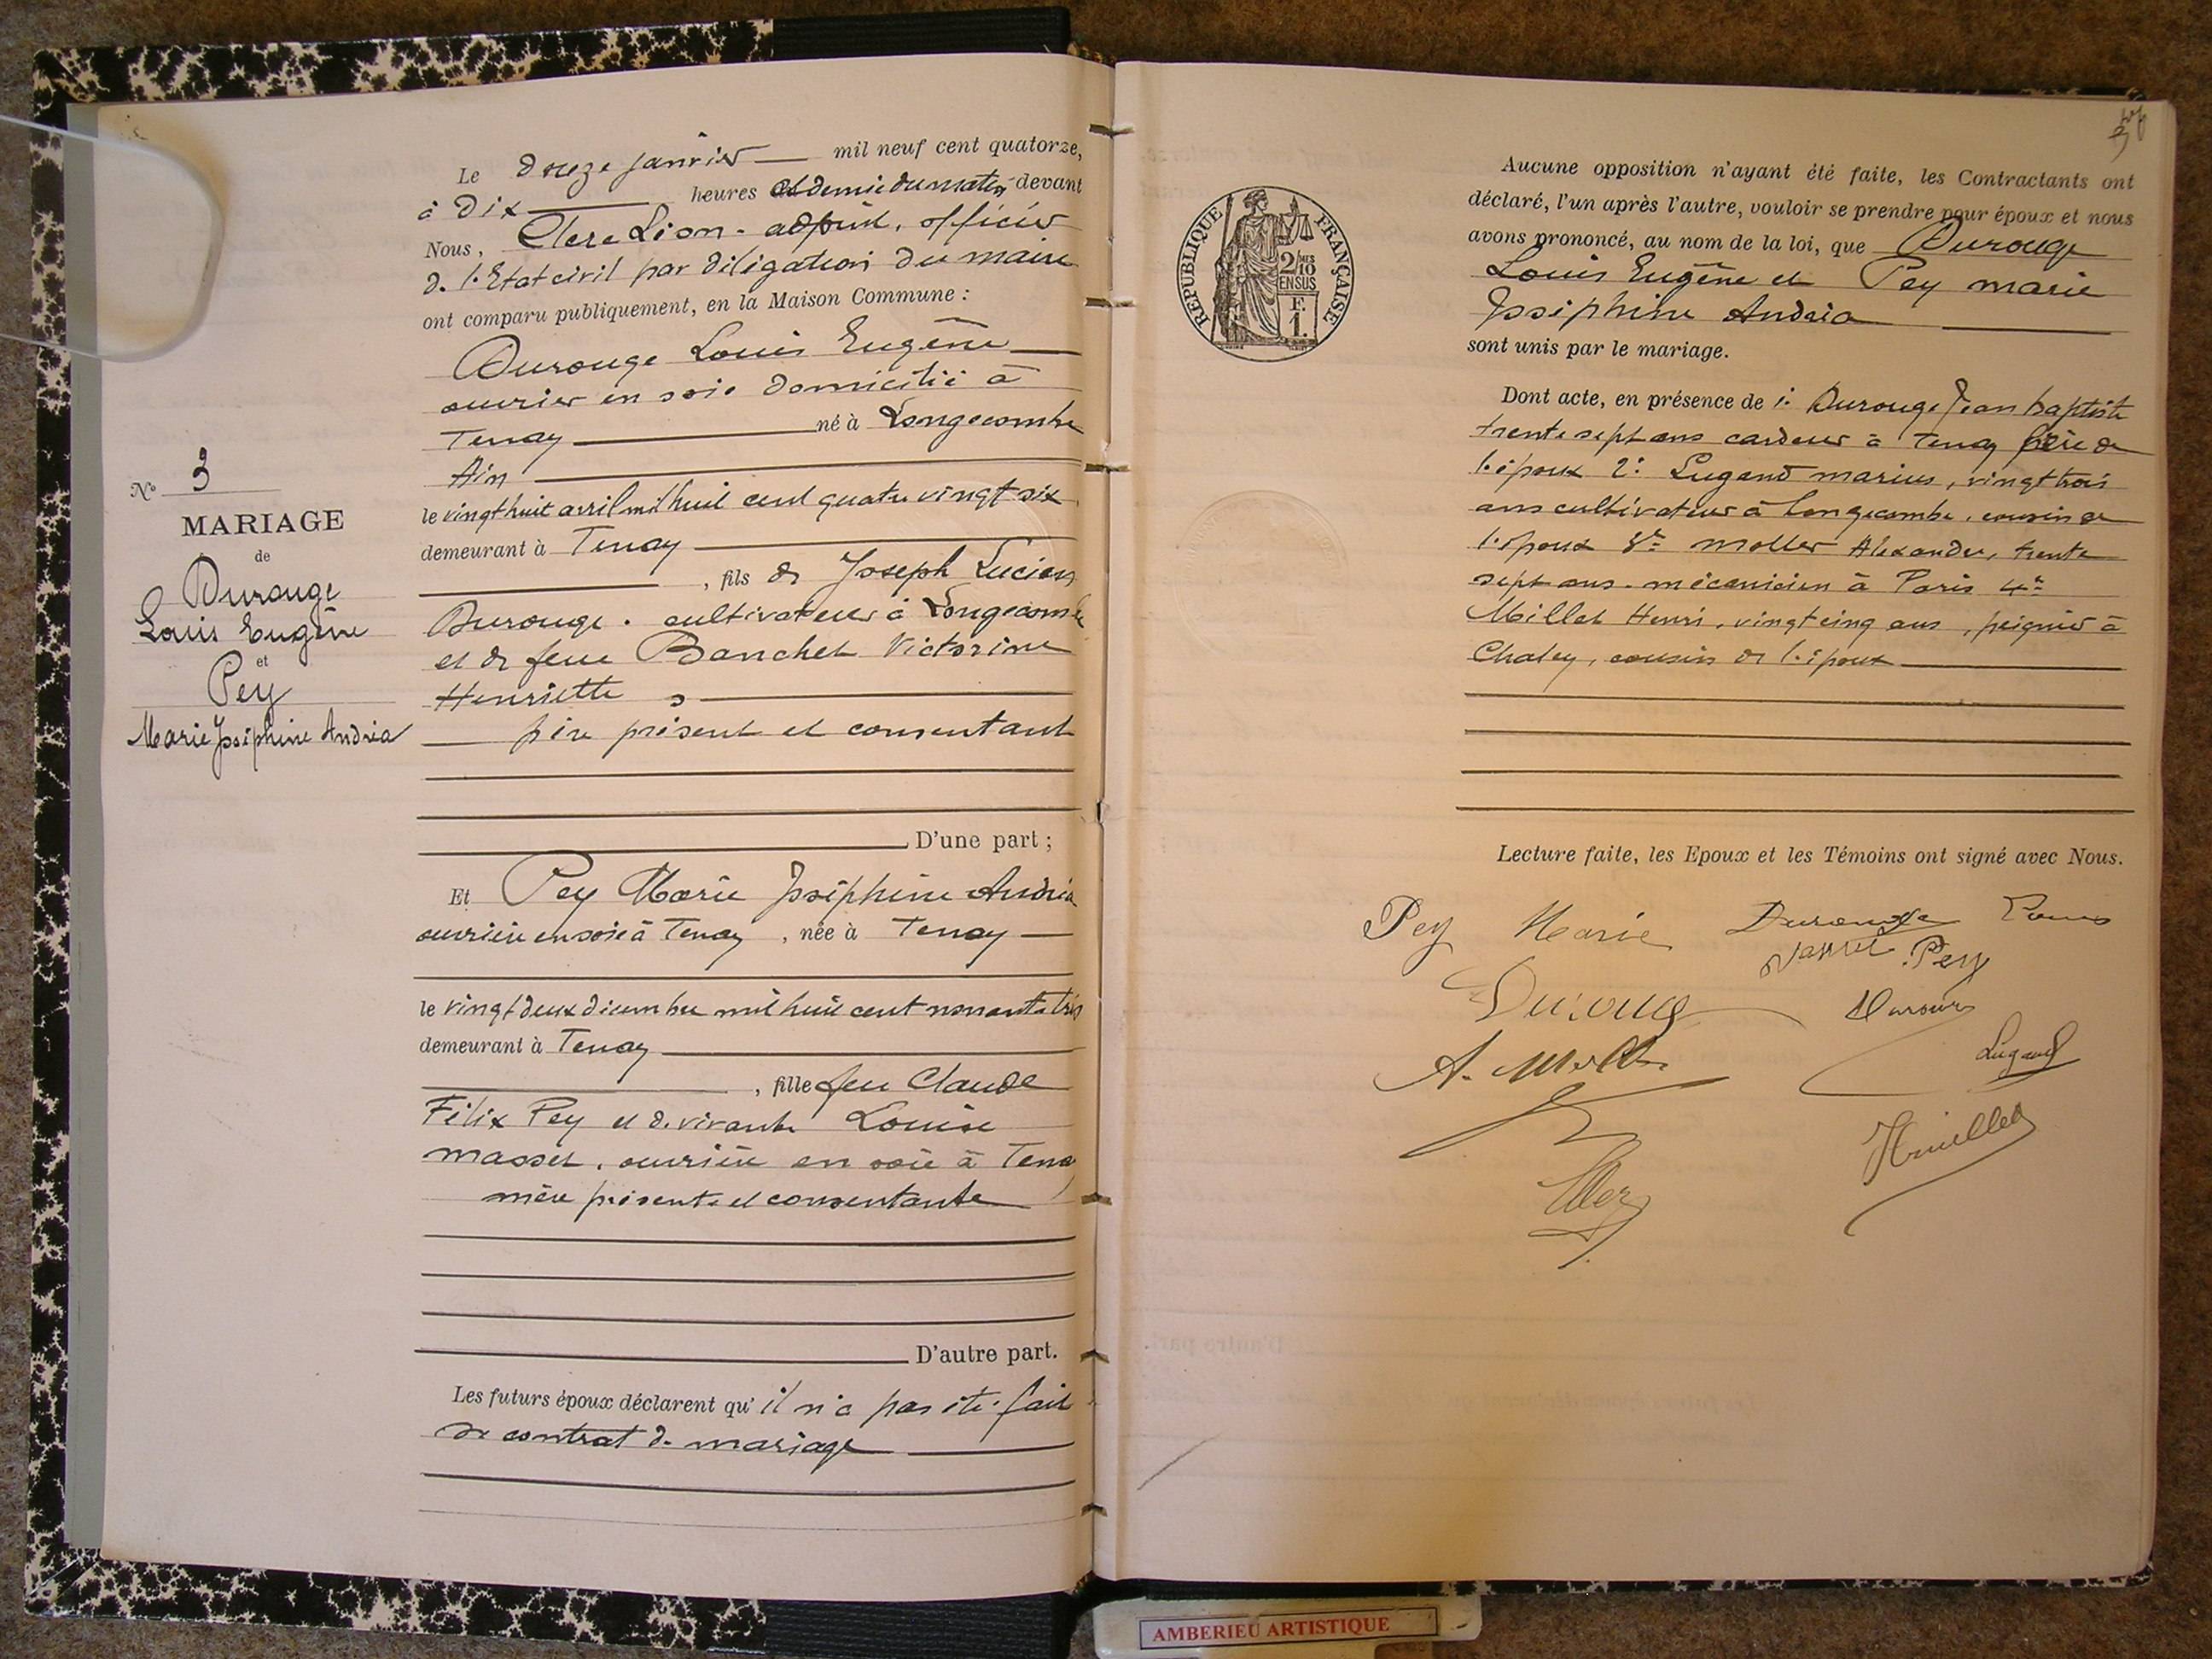 Le douze janvier mil neuf cent quatorze,
à dix heures et demie du matin devant
Nous, Léon adjoint, officier
de l'Etat civil par délégation du maire
ont comparu publiquement, en la Maison Commune :
Durouge Louis Eugène
ouvrier en soie domicilié à
Tenay né à Longecombe
Ain
le vingt huit avril mil huit cent quatre vingt six
demeurant à Tenay
, fils de Joseph Lucien
Durouge. cultivateur à Longecombe
et de feue Banchet Victorine
Henriette
père présent et consentant
D'une part ;
Et Pey Marie Joséphine Andréa
ouvrière en soie à Tenay, née à Tenay
le vingt deux décembre mil huit cent nonante trois
demeurant à Tenay
, fille de feu Claude
Félix Pey et de vivante Louise
Masset, ouvrière en soie à Tenay
mère présente et consentante
D'autre part.
Les futurs époux déclarent qu'il n'a pas été fait
de contrat de mariage
N° 3
MARIAGE
de
Durouge
Louis Eugène
et
Pey
Marie Joséphine Andréa
RÉPUBLIQUE FRANÇAISE
2/10 MES
EN SUS
F.
1.
Aucune opposition n'ayant été faite, les Contractants ont
déclaré, l'un après l'autre, vouloir se prendre pour époux et nous
avons prononcé, au nom de la loi, que Durouge
Louis Eugène et Pey Marie
Joséphine Andréa
sont unis par le mariage.
Dont acte, en présence de 1° Durouge Jean baptiste
trente sept ans cardeur à Tenay frère de
l'époux 2° Lugand Marius, vingt trois
ans cultivateur à Longecombe, cousin de
l'époux 3° Moller Alexandre, trente
sept ans. mécanicien à Paris 4°
Millet Henri, vingt cinq ans, peigneur à
Chaley, cousin de l'époux
Lecture faite, les Epoux et les Témoins ont signé avec Nous.
Pey Marie Durouge Louis
Masset Pey
Durouge Durouge
A. Moller Lugand
Hmillet
AMBERIEU ARTISTIQUE